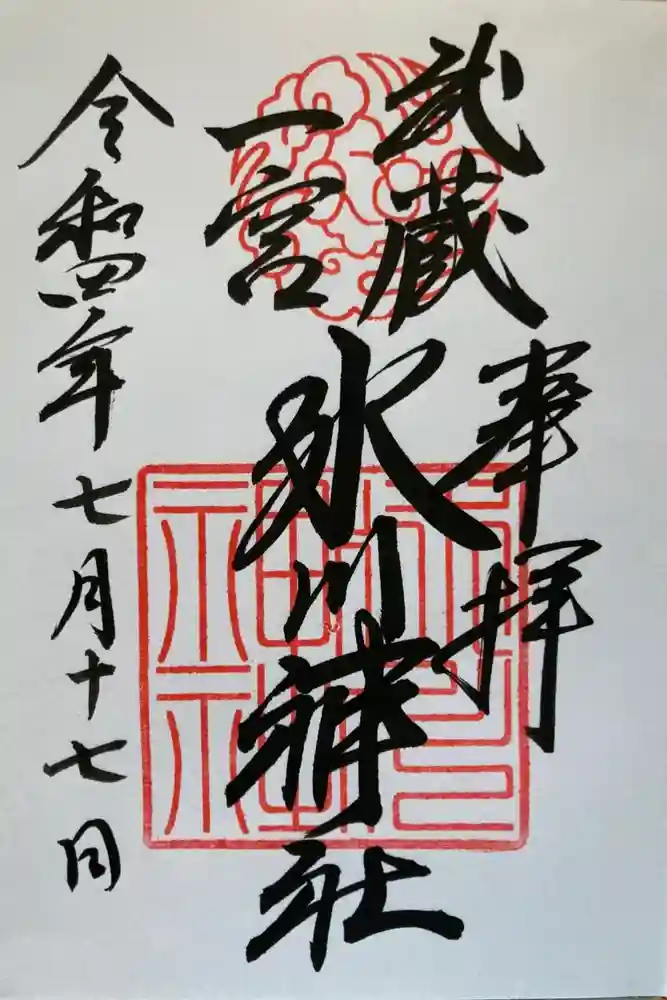 奉拝
武蔵
一宮
氷川神社
令和四年七月十七日